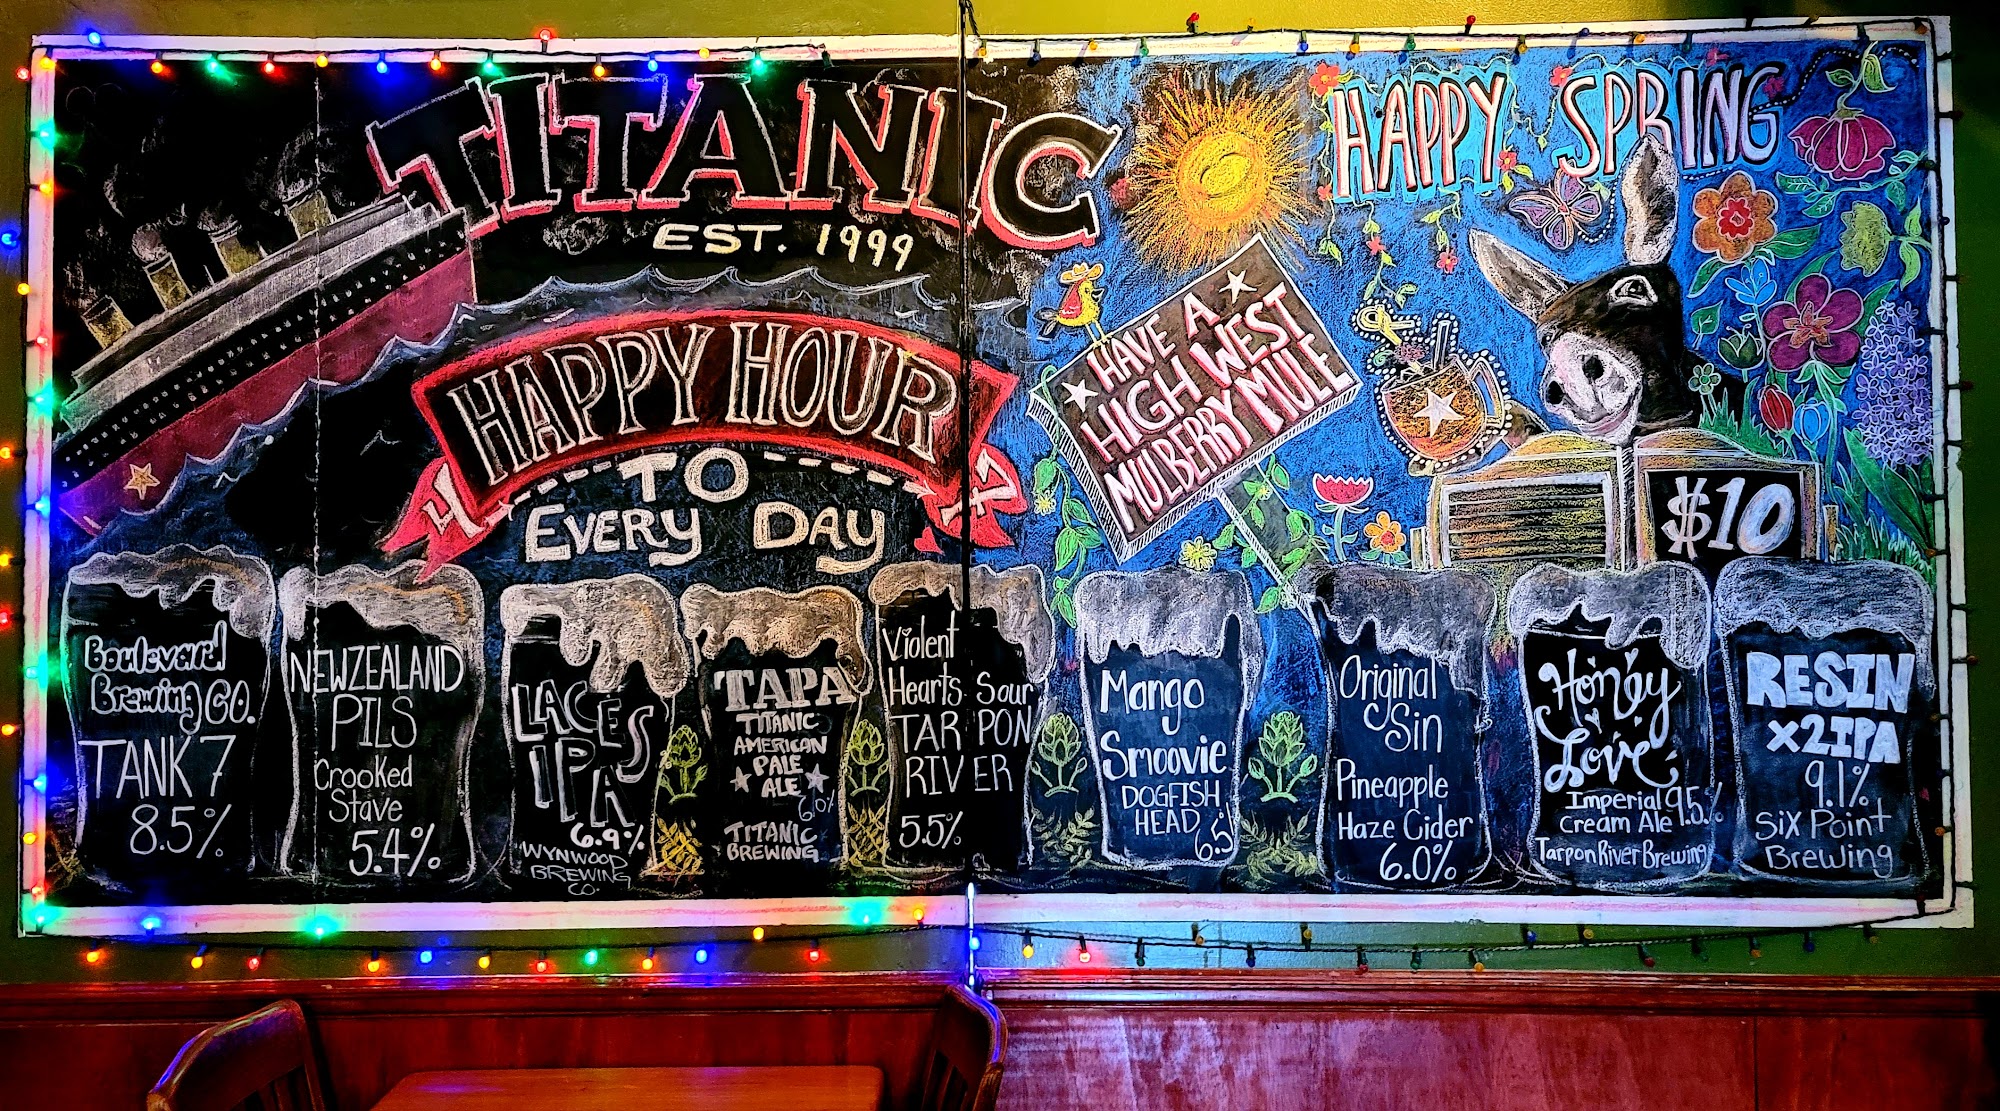 TITANIC
EST. 1999
HAPPY HOUR
4 TO 7
EVERY DAY
HAPPY SPRING
HAVE A
HIGH WEST
MULBERRY MULE
$10
Boulevard
Brewing CO.
TANK 7
8.5%
NEWZEALAND
PILS
Crooked
Stave
5.4%
LACES
IPA
6.9%
WYNWOOD
BREWING
CO.
TAPA
TITANIC
AMERICAN
PALE
ALE
6.0%
TITANIC
BREWING
Violent
Hearts Sour
TARPON
RIVER
5.5%
Mango
Smoovie
DOGFISH
HEAD
6.5%
Original
Sin
Pineapple
Haze Cider
6.0%
Honey
Love
Imperial
Cream Ale 9.5%
Tarpon River Brewing
RESIN
x2IPA
9.1%
Six Point
Brewing